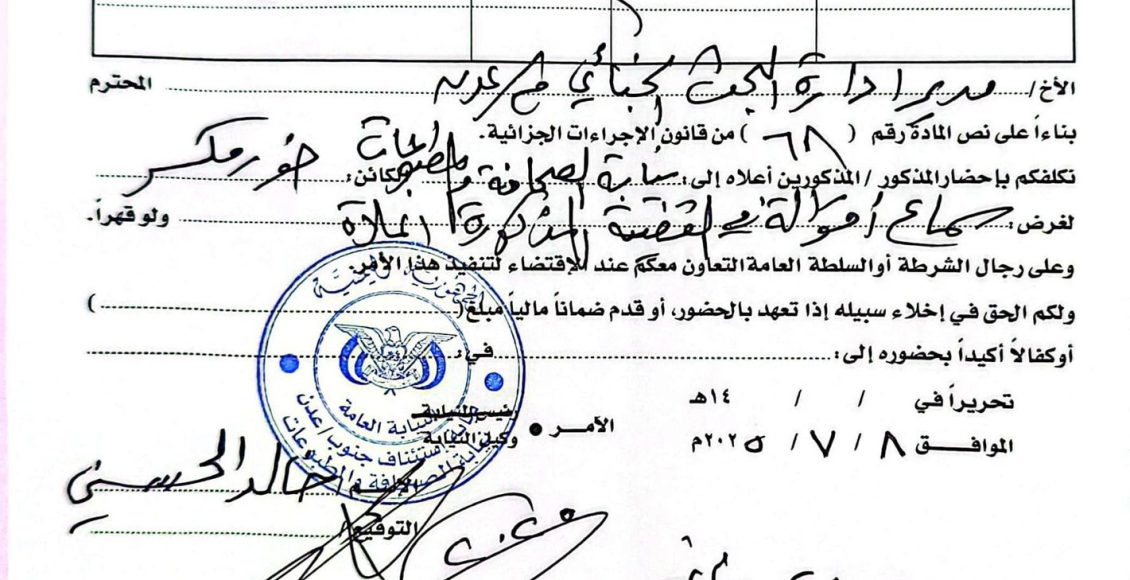 الأخ / مدير ادارة البحث الجنائي م/عدن المحترم
بناءاً على نص المادة رقم ( ٦٨ ) من قانون الإجراءات الجزائية.
نكلفكم بإحضار المذكور / المذكورين أعلاه إلى: نيابة الصحافة والمطبوعات الكائن: خور مكسر
لغرض: سماع أقواله في القضية المذكورة اعلاه ولو قهراً.
وعلى رجال الشرطة أو السلطة العامة التعاون معكم عند الإقتضاء لتنفيذ هذا الأمر
ولكم الحق في إخلاء سبيله إذا تعهد بالحضور، أو قدم ضماناً مالياً مبلغ ( )
أو كفالاً أكيداً بحضوره إلى: في:
تحريراً في / / ١٤هـ
الموافق ٨ / ٧ / ٢٠٢٥م
الآمر • رئيس النيابة
وكيل النيابة
الإسم / خالد الحسني
التوقيع /
الجمهورية اليمنية
النيابة العامة
نيابة استئناف جنوب / عدن
نيابة الصحافة والمطبوعات